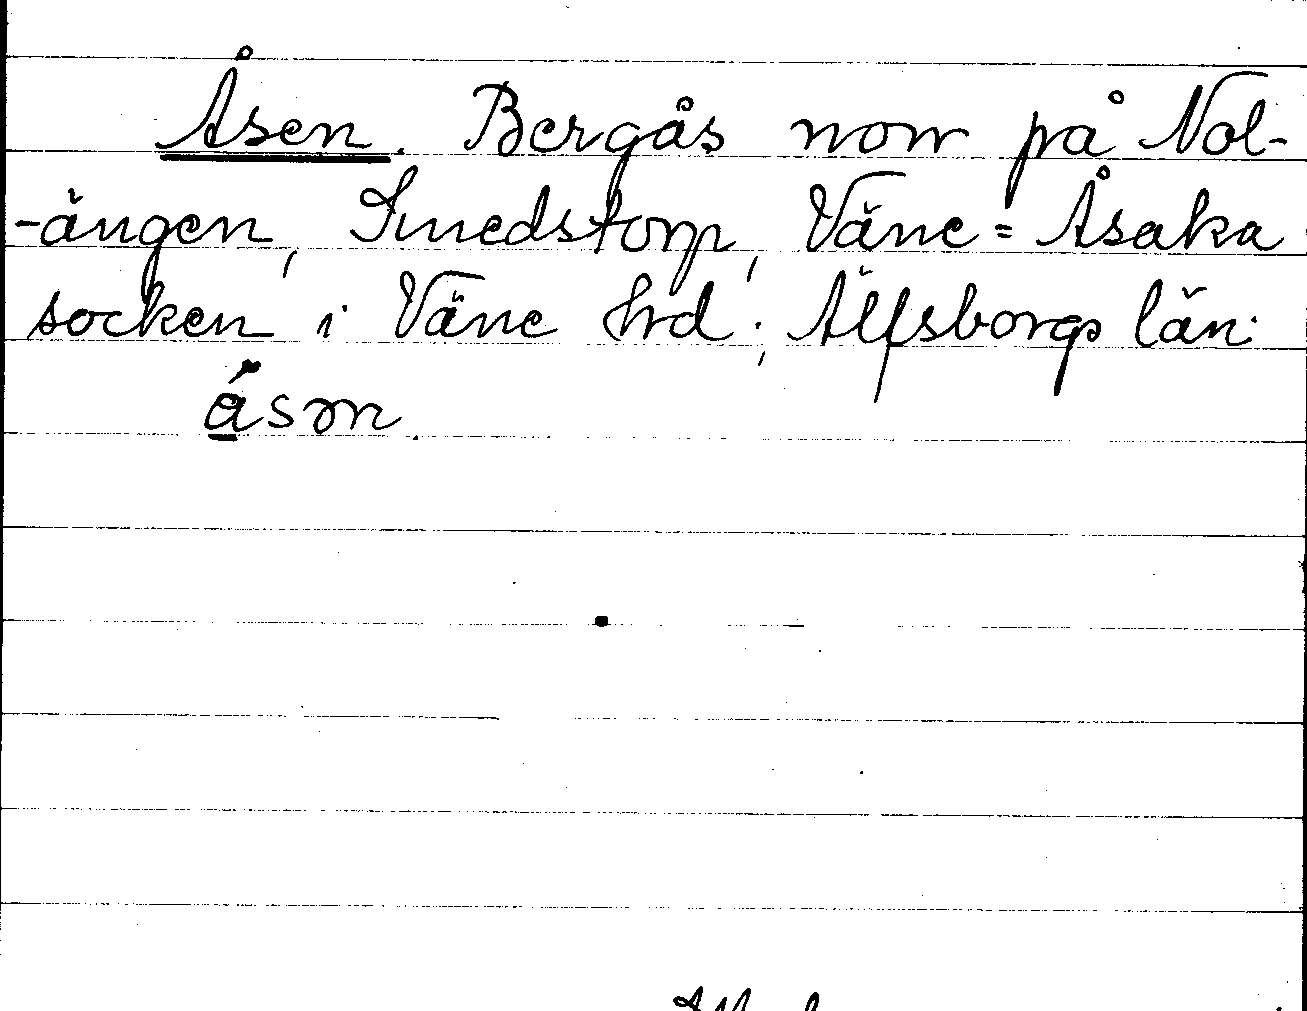 Åsen. Bergås norr på Nol-
-ängen, Smedstorp, Väne=Åsaka
socken i Väne hrd; Älfsborgs län.
åsɷn.